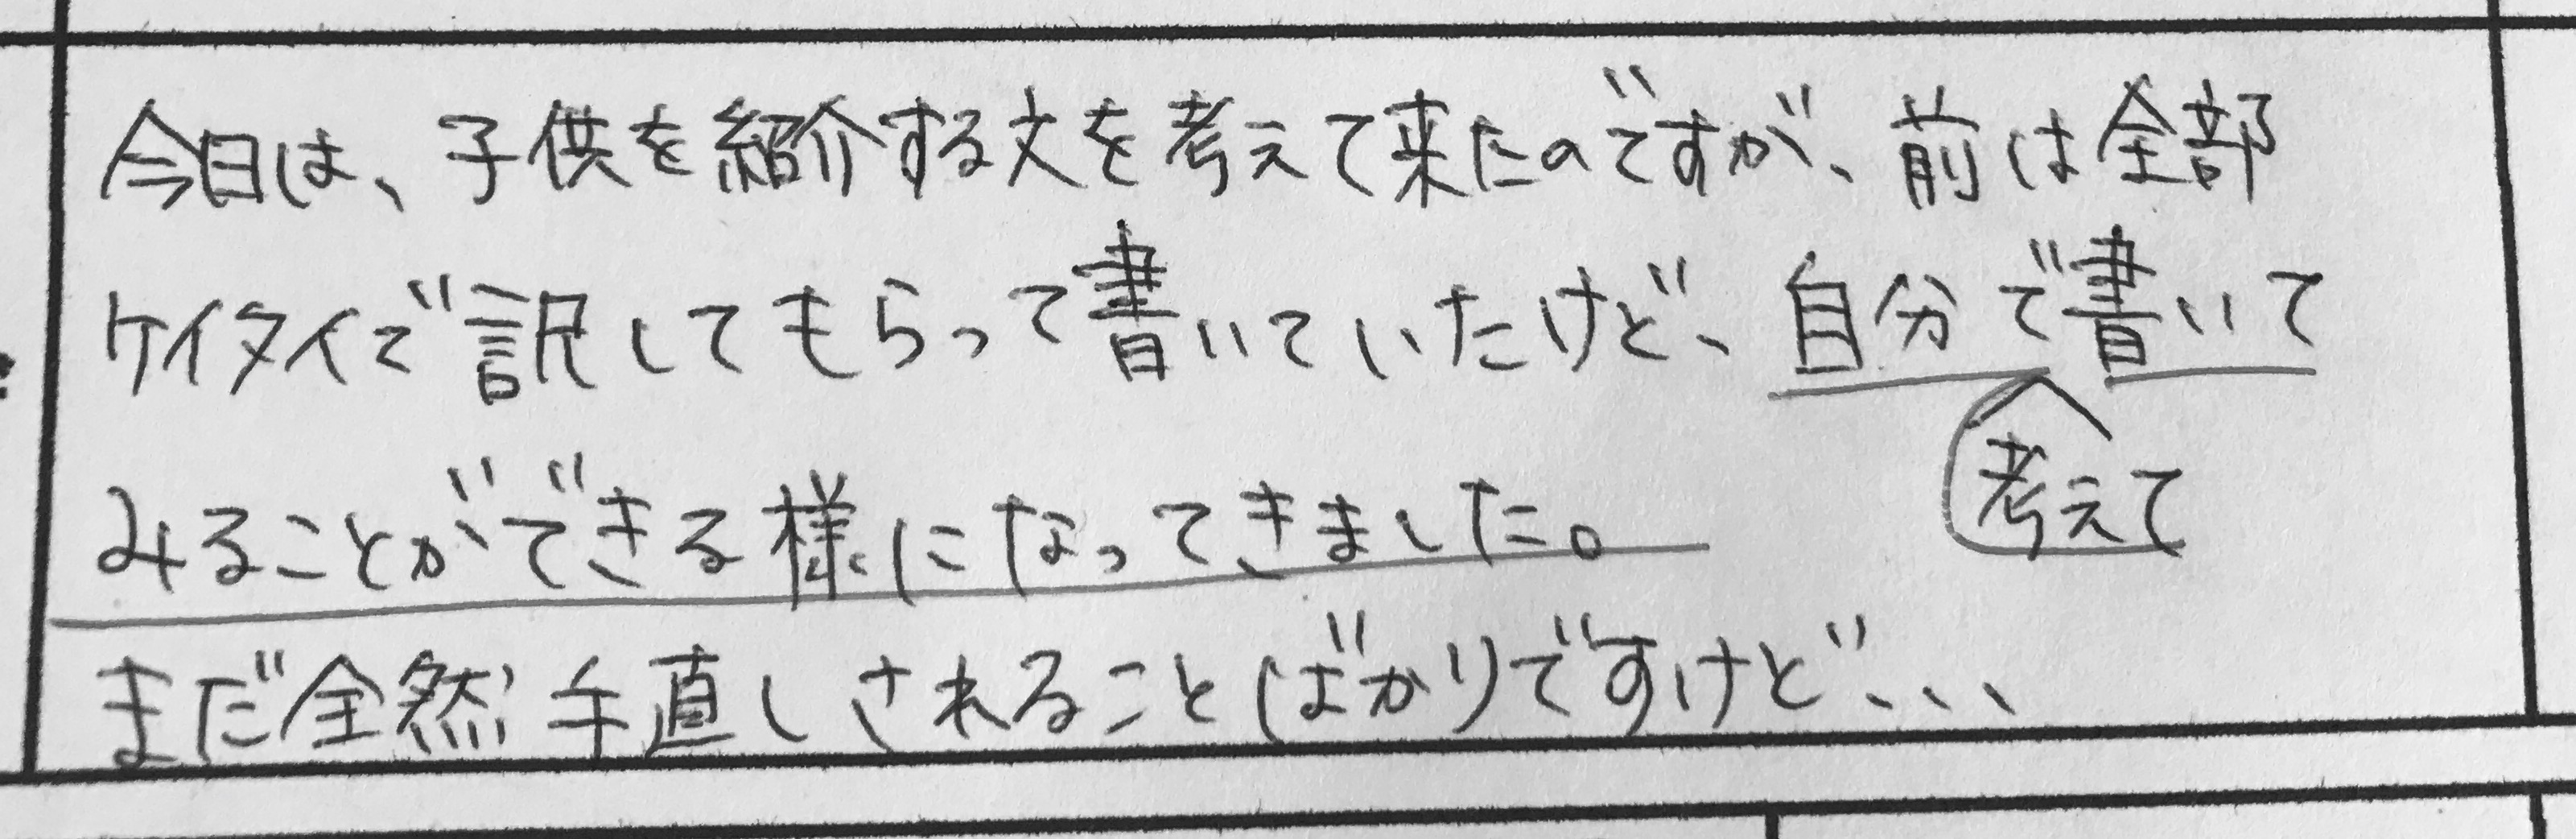 今日は、子供を紹介する文を考えて来たのですが、前は全部
ケイタイで訳してもらって書いていたけど、自分で書いて
考えて
みることができる様になってきました。
まだ全然手直しされることばかりですけど、、、